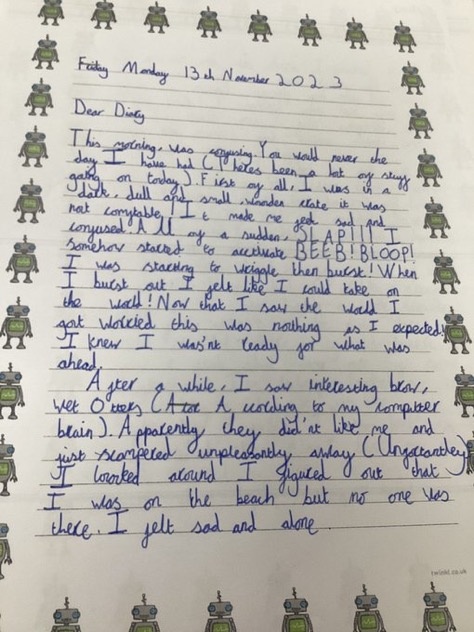 Friday Monday 13th November 2023
Dear Diary
This morning, was confusing. You would never the
day I have had (Theres been a lot of stuff
going on today). First of all, I was in a
dark, dull and small, wooden crate it was
not comftable! It made me feel sad and
confused. All of a sudden, SLAP!!!! I
somehow started to acctivate BEEB! BLOOP!
I was starting to wriggle then burst! When
I burst out I felt like I could take on
the world! Now that I saw the world I
got worried this was nothing as I expected!
I knew I was'nt ready for what was
ahead.
After a while, I saw interesting brow,
wet Otters (A cording to my computer
brain). Apparently they did'nt like me and
just scampered unpleasantly away (Unfortantley)
I looked around I figured out that
I was on the beach but no one was
there. I felt sad and alone
twinkl.co.uk